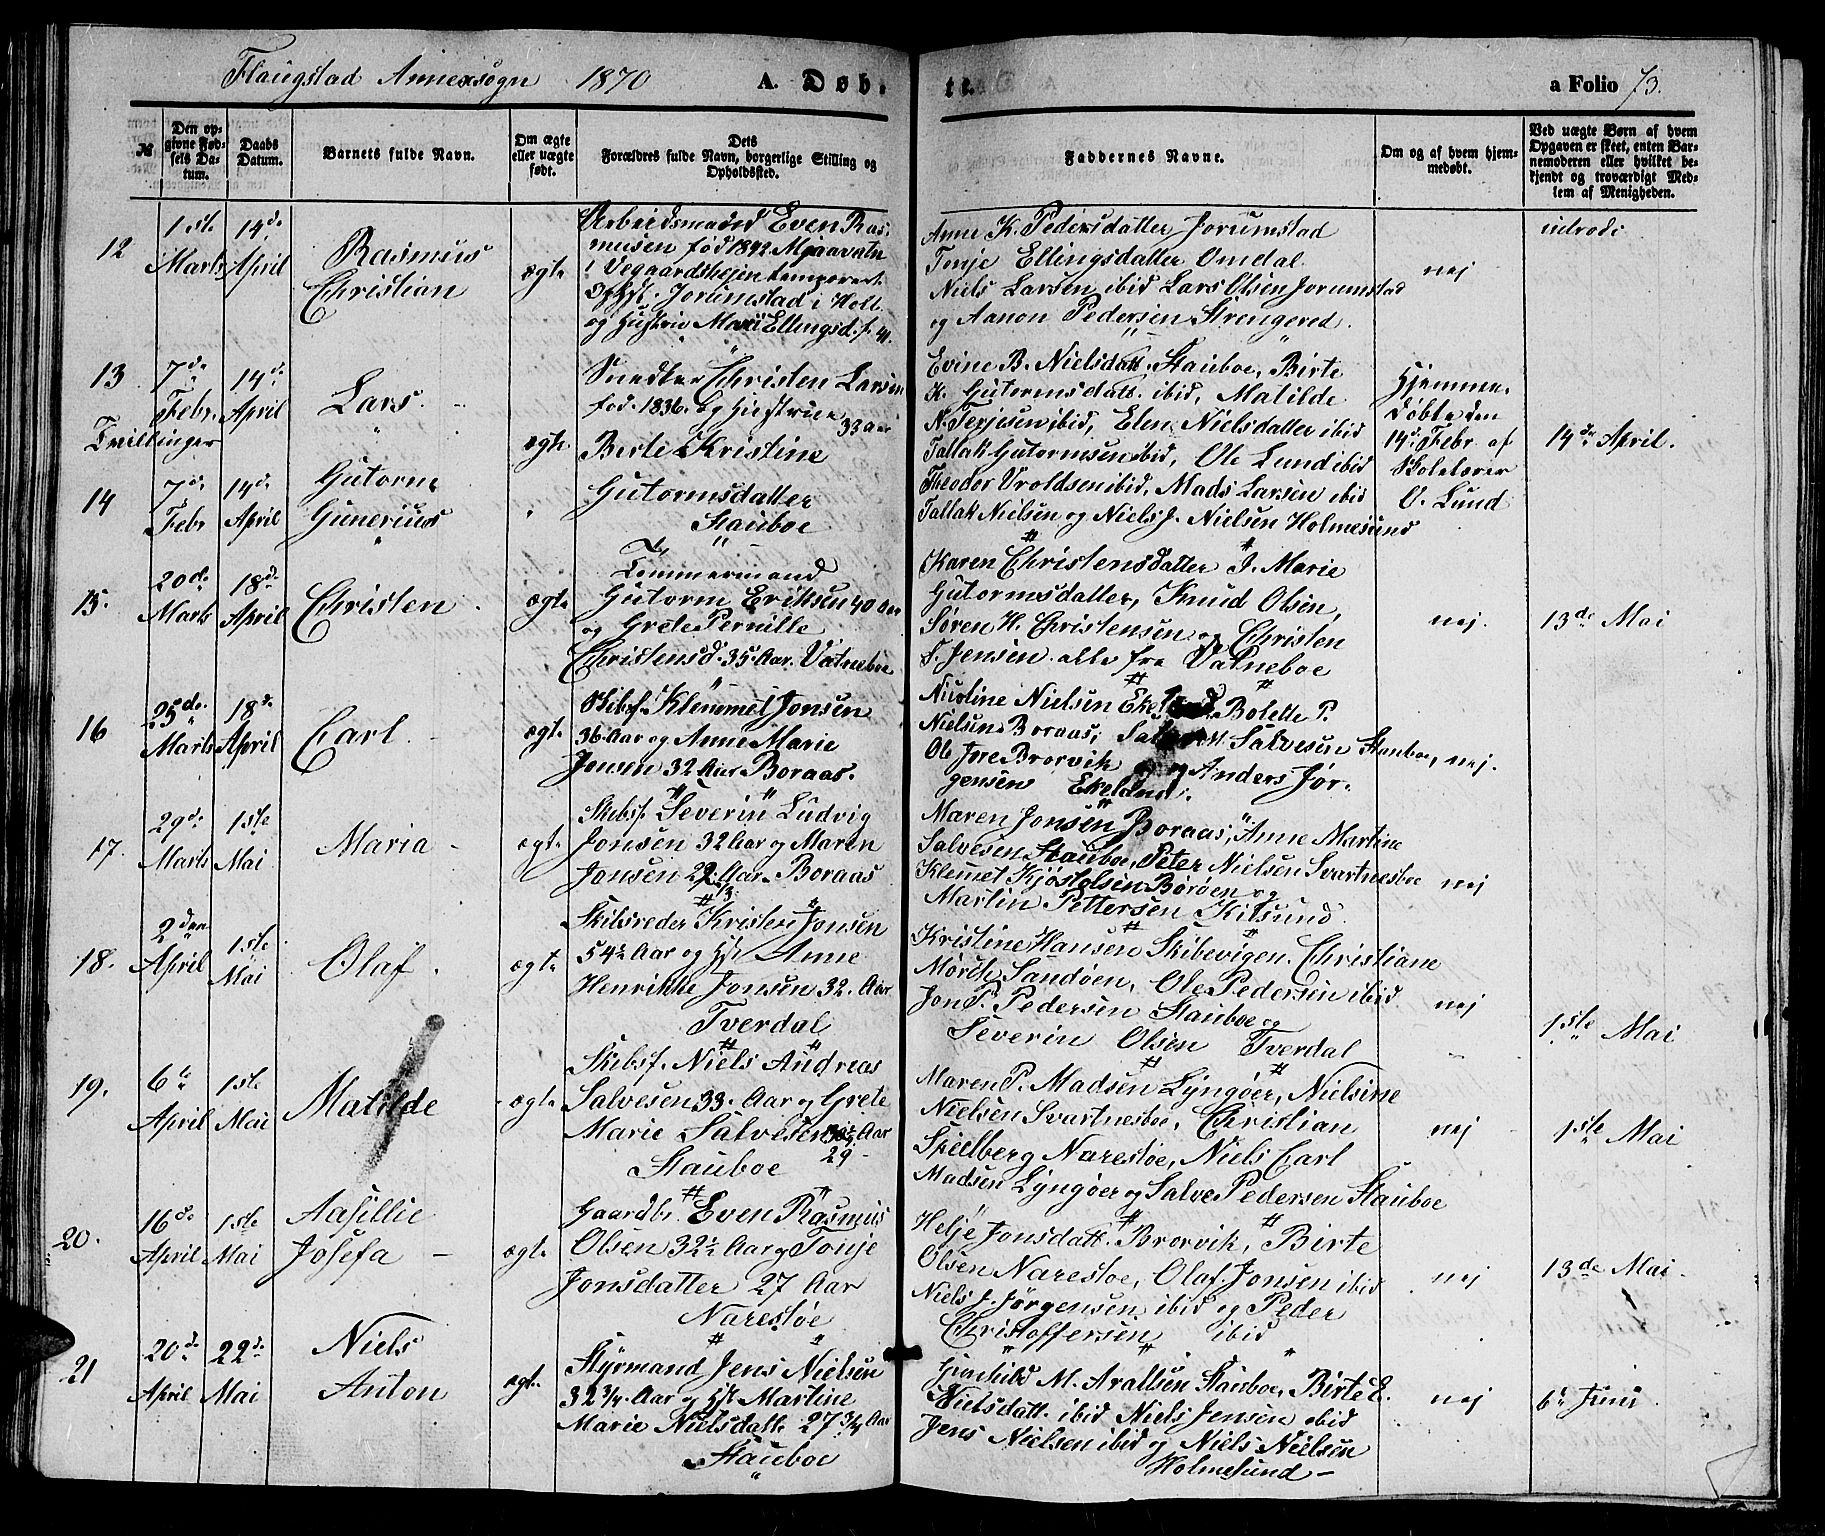 Flaugstad Annexsogn 1870 A. Døb- te. a Folio 73.
№
Den op-
givne Fød-
sels Da-
tum.
Daabs
Datum.
Barnets fulde Navn.
Om ægte
eller uægte
født.
Dets
Forældres fulde Navn, borgerlige Stilling og
Opholdssted.
Faddernes Navne.
Om og af hvem hjem-
medøbt.
Ved uægte Børn af hvem
Opgaven er skeet, enten Bar-
nemoderen eller hvilket be-
kjendt og troværdigt Med-
lem af Menigheden.
12
1ste
Marts
14de
April
Rasmus
Christian
ægte
Arbeidsmand Even Ras-
musen fød 1842 Mjaavatn
i Vegaardsheien temporært
Jorumstad i Holt
og Hustrue Mari Ellingsd. f. 41.
Anne K. Pedersdatter Jorumstad
Tonje Ellingsdatter Omdal
Niels Larsen ibid Lars Olsen Jorumstad
og Aanon Pedersen Strengered.
nej
13
7de
Febr.
14de
April
Lars
Tvillinger
ægte
Snedker Christen Larsen
fød. 1836. og Hustrue
33 aar
Berte Kristine
Gutormsdatter
Stauboe
Evine B. Nielsdatt. Stauboe, Birte
K. Gutormsdatt. ibid, Matilde
N. Terjesen ibid, Elen Nielsdatter ibid
Tallak Gutormsen ibid, Ole Lund ibid
Theodor Uroldsen ibid, Mads Larsen ibid
Tallak Nielsen og Niels J. Nielsen Holmesund
Hjemme-
døbte den
14de Febr. af
Skolelærer
O. Lund
14de April.
14
7de
Febr
14de
April
Gutorm
Gunerius
15.
20de
Marts
18de
April
Christen
ægte
Tømmermand
Gutorm Eriksen 40 Aar
og Grete Pernille
Christensd. 35. Aar. Vatneboe
Karen Christensdatter J. Marie
Gutormsdatter, Knud Olsen,
Søren H. Christensen og Christen
F. Jensen. alle fra Vatneboe
nej.
13de Mai
16
25de
Marts
18de
April
Carl
ægte
Skibsf. Klemmet Jonsen
36. Aar og Anne Marie
Jonsen 32 Aar Boraas.
Nicoline Nielsen Bolette P.
Nielsen Boraas, M. Salvesen Stauboe,
Ole Jore Brorvik og Anders Jør-
gensen Ekeland.
nej.
17.
29de
Marts
1ste
Mai
Maria
ægte
Skibsf. Severin Ludvig
Jonsen 32 Aar og Maren
Jonsen 22 Aar Boraas
Maren Jonsen Boraas, Anne Martine
Salvesen Stauboe, Peter Nielsen Svartnesboe
Klemet Kjøstolsen Børøen og
Martin Pettersen Kilsund
nej
18.
2den
April
1ste
Mai
Olaf.
ægte
Skibsreder Kristen Jonsen
54½ Aar og Hst Anne
Henrikke Jonsen 32. Aar
Tverdal
Kristine Hansen Skibevigen. Christiane
Mørch Sandøen, Ole Pedersen ibid.
Jon P. Pedersen Stauboe og
Severin Olsen Tverdal
nej
1ste Mai
19.
6te
April
1ste
Mai
Matilde
ægte
Skibsf. Niels Andreas
Salvesen 33. Aar og Grete
Marie Salvesen Aar
29
Stauboe
Maren P. Madsen Lyngøer, Nielsine
Nielsen Svartnesboe, Christian
Spielberg Narestøe, Niels Carl
Madsen Lyngøer og Salve Pedersen Stauboe
nej
1ste Mai
20.
16de
April
1ste
Mai
Aasillie
Josefa
ægte
Gaardbr. Even Rasmus
Olsen 32½ Aar og Tonje
Jonsdatter 27 Aar
Narestøe
Helje Jonsdatt. Brorvik, Birte
Olsen Narestoe, Olaf Jonsen ibid
Niels J. Jørgensen ibid og Peder
Christoffersen ibid
nej
13de Mai
21
20de
April
22de
Mai
Niels
Anton
ægte
Styrmand Jens Nielsen
32 3/4 Aar og Hst Martine
Marie Nielsdatt. 27 3/4 Aar
Stauboe
Gunhild M. Aralfsen Stauboe, Birte E.
Nielsdatt. ibid Niels Jensen ibid
Jens Nielsen ibid og Niels Nielsen
Holmesund
nej
6te Juni